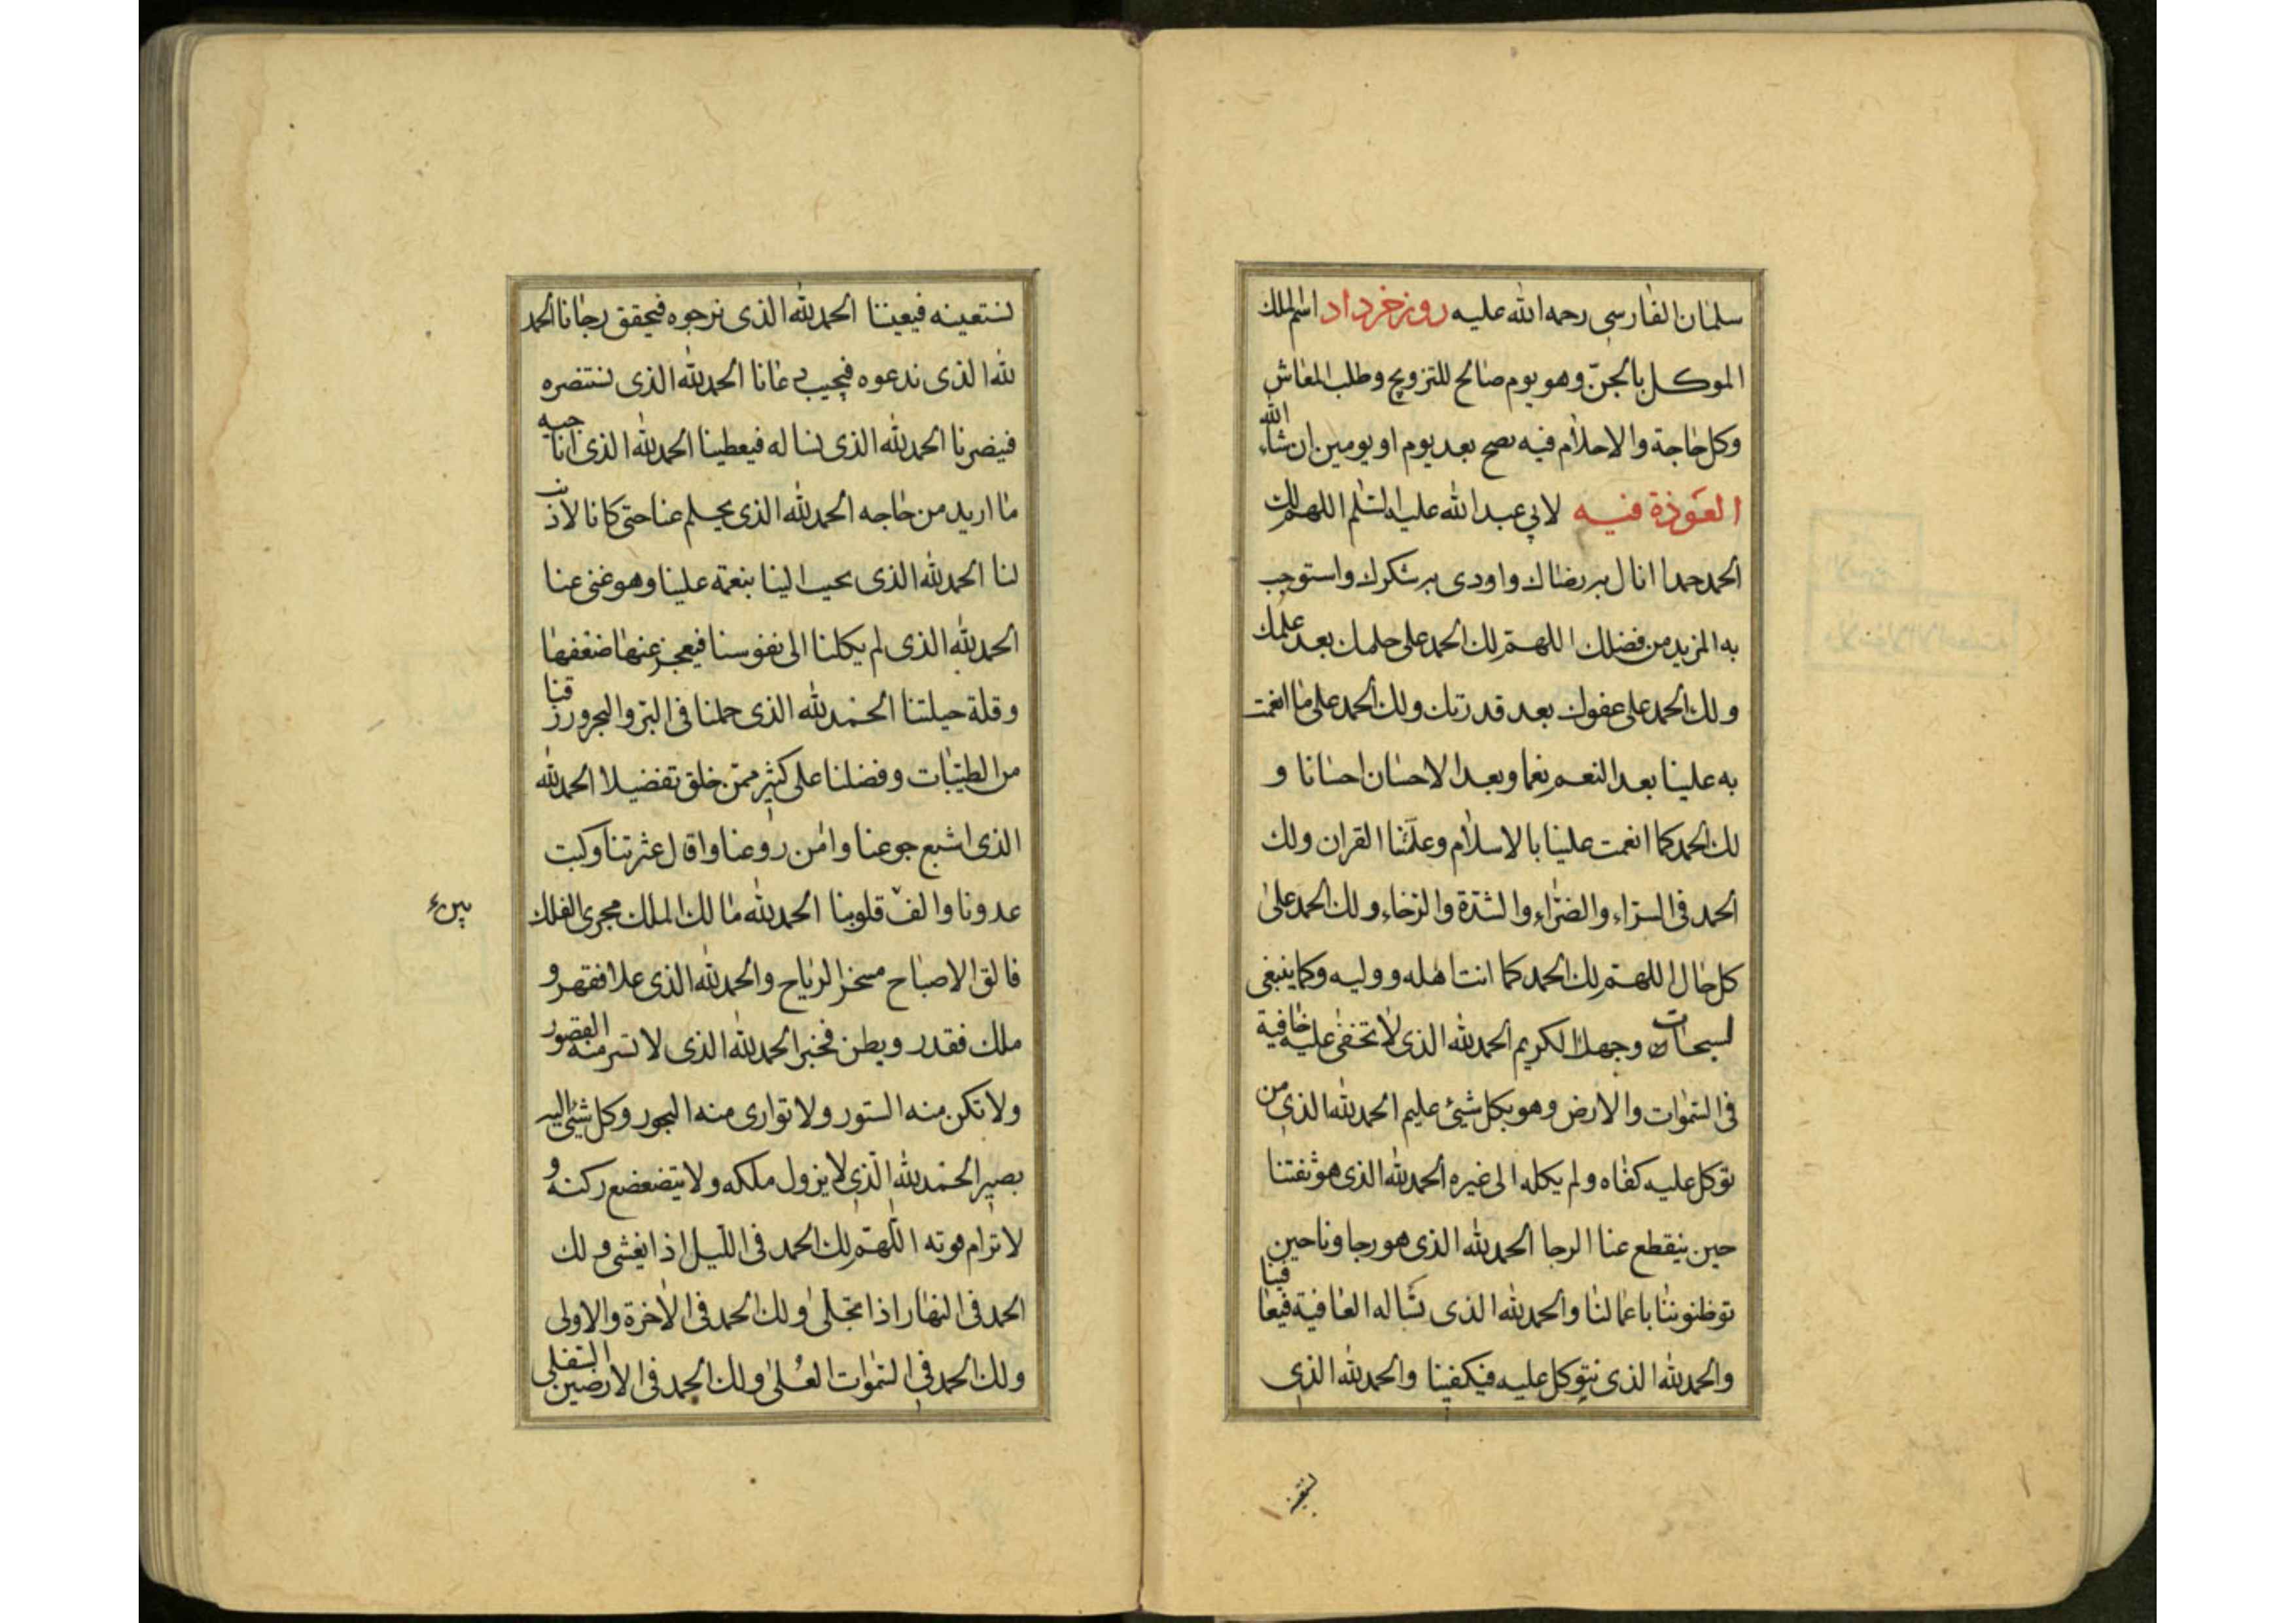 سلمان الفارسي رحمه الله عليه روز خرداد اسم الملك
الموكل بالجن وهو يوم صالح للتزويج وطلب المعاش
وكل حاجة والاحلام فيه تصح بعد يوم او يومين ان شاء الله
العوذة فيه لابي عبد الله عليه السلم اللهم لك
الحمد حمدا انال به رضاك واودى به شكرك واستوجب
به المزيد من فضلك اللهم لك الحمد على حلمك بعد علمك
ولك الحمد على عفوك بعد قدرتك ولك الحمد على ما انعمت
به علينا بعد النعم نعما وبعد الاحسان احسانا و
لك الحمد كما انعمت علينا بالاسلام وعلمتنا القران ولك
الحمد فى السراء والضراء والشدة والرخاء ولك الحمد على
كل حال اللهم لك الحمد كما انت اهله ووليه وكما ينبغى
لسبحات وجهك الكريم الحمد لله الذى لا تخفى عليه خافية
فى السموات والارض وهو بكل شئ عليم الحمد لله الذى من
توكل عليه كفاه ولم يكله الى غيره الحمد لله الذى هو ثقتنا
حين ينقطع عنا الرجا الحمد لله الذى هو رجاونا حين
باعمالنا والحمد لله الذى نساله العافية فيعافينا
والحمد لله الذى نتوكل عليه فيكفينا والحمد لله الذى
نستعينه فيعيننا الحمد لله الذى نرجوه فيحقق رجانا الحمد
لله الذى ندعوه فيجيب دعانا الحمد لله الذى نستنصره
فينصرنا الحمد لله الذى نساله فيعطينا الحمد لله الذى اناجيه
ما اريد من حاجه الحمد لله الذى يحلم عنا حتى كانا لا ذنب
لنا الحمد لله الذى يحبب الينا بنعمة علينا وهو غنى عنا
الحمد لله الذى لم يكلنا الى نفوسنا فيعجز عنها ضعفها
وقلة حيلتنا الحمد لله الذى حملنا فى البر والبحر ورزقنا
من الطيبات وفضلنا على كثير ممن خلق تفضيلا الحمد لله
الذى اشبع جوعنا وامن روعنا واقال عثرتنا وكبت
عدونا والف قلوبنا الحمد لله مالك الملك مجرى الفلك
فالق الاصباح مسخر الرياح والحمد لله الذى علا فقهر و
ملك فقدر وبطن فخبر الحمد لله الذى لا تستر منه القصور
ولا تكن منه الستور ولا توارى منه البحور وكل شئ اليه
بصير الحمد لله الذى لا يزول ملكه ولا يتضعضع ركنه و
لا ترام قوته اللهم لك الحمد فى الليل اذا يغشى ولك
الحمد فى النهار اذا تجلى ولك الحمد فى الاخرة والاولى
ولك الحمد فى السموات العلى ولك الحمد فى الارضين السفلى